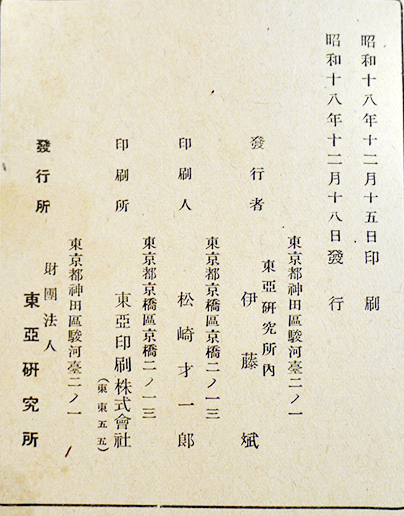 昭和十八年十二月十五日印刷
昭和十八年十二月十八日發行
東京都神田區駿河臺二ノ一
東亞硏究所內
發行者 伊藤斌
東京都京橋區京橋二ノ一三
印刷人 松崎才一郞
東京都京橋區京橋二ノ一三
印刷所 東亞印刷株式會社
(東東五五)
東京都神田區駿河臺二ノ一
發行所 財團法人 東亞硏究所